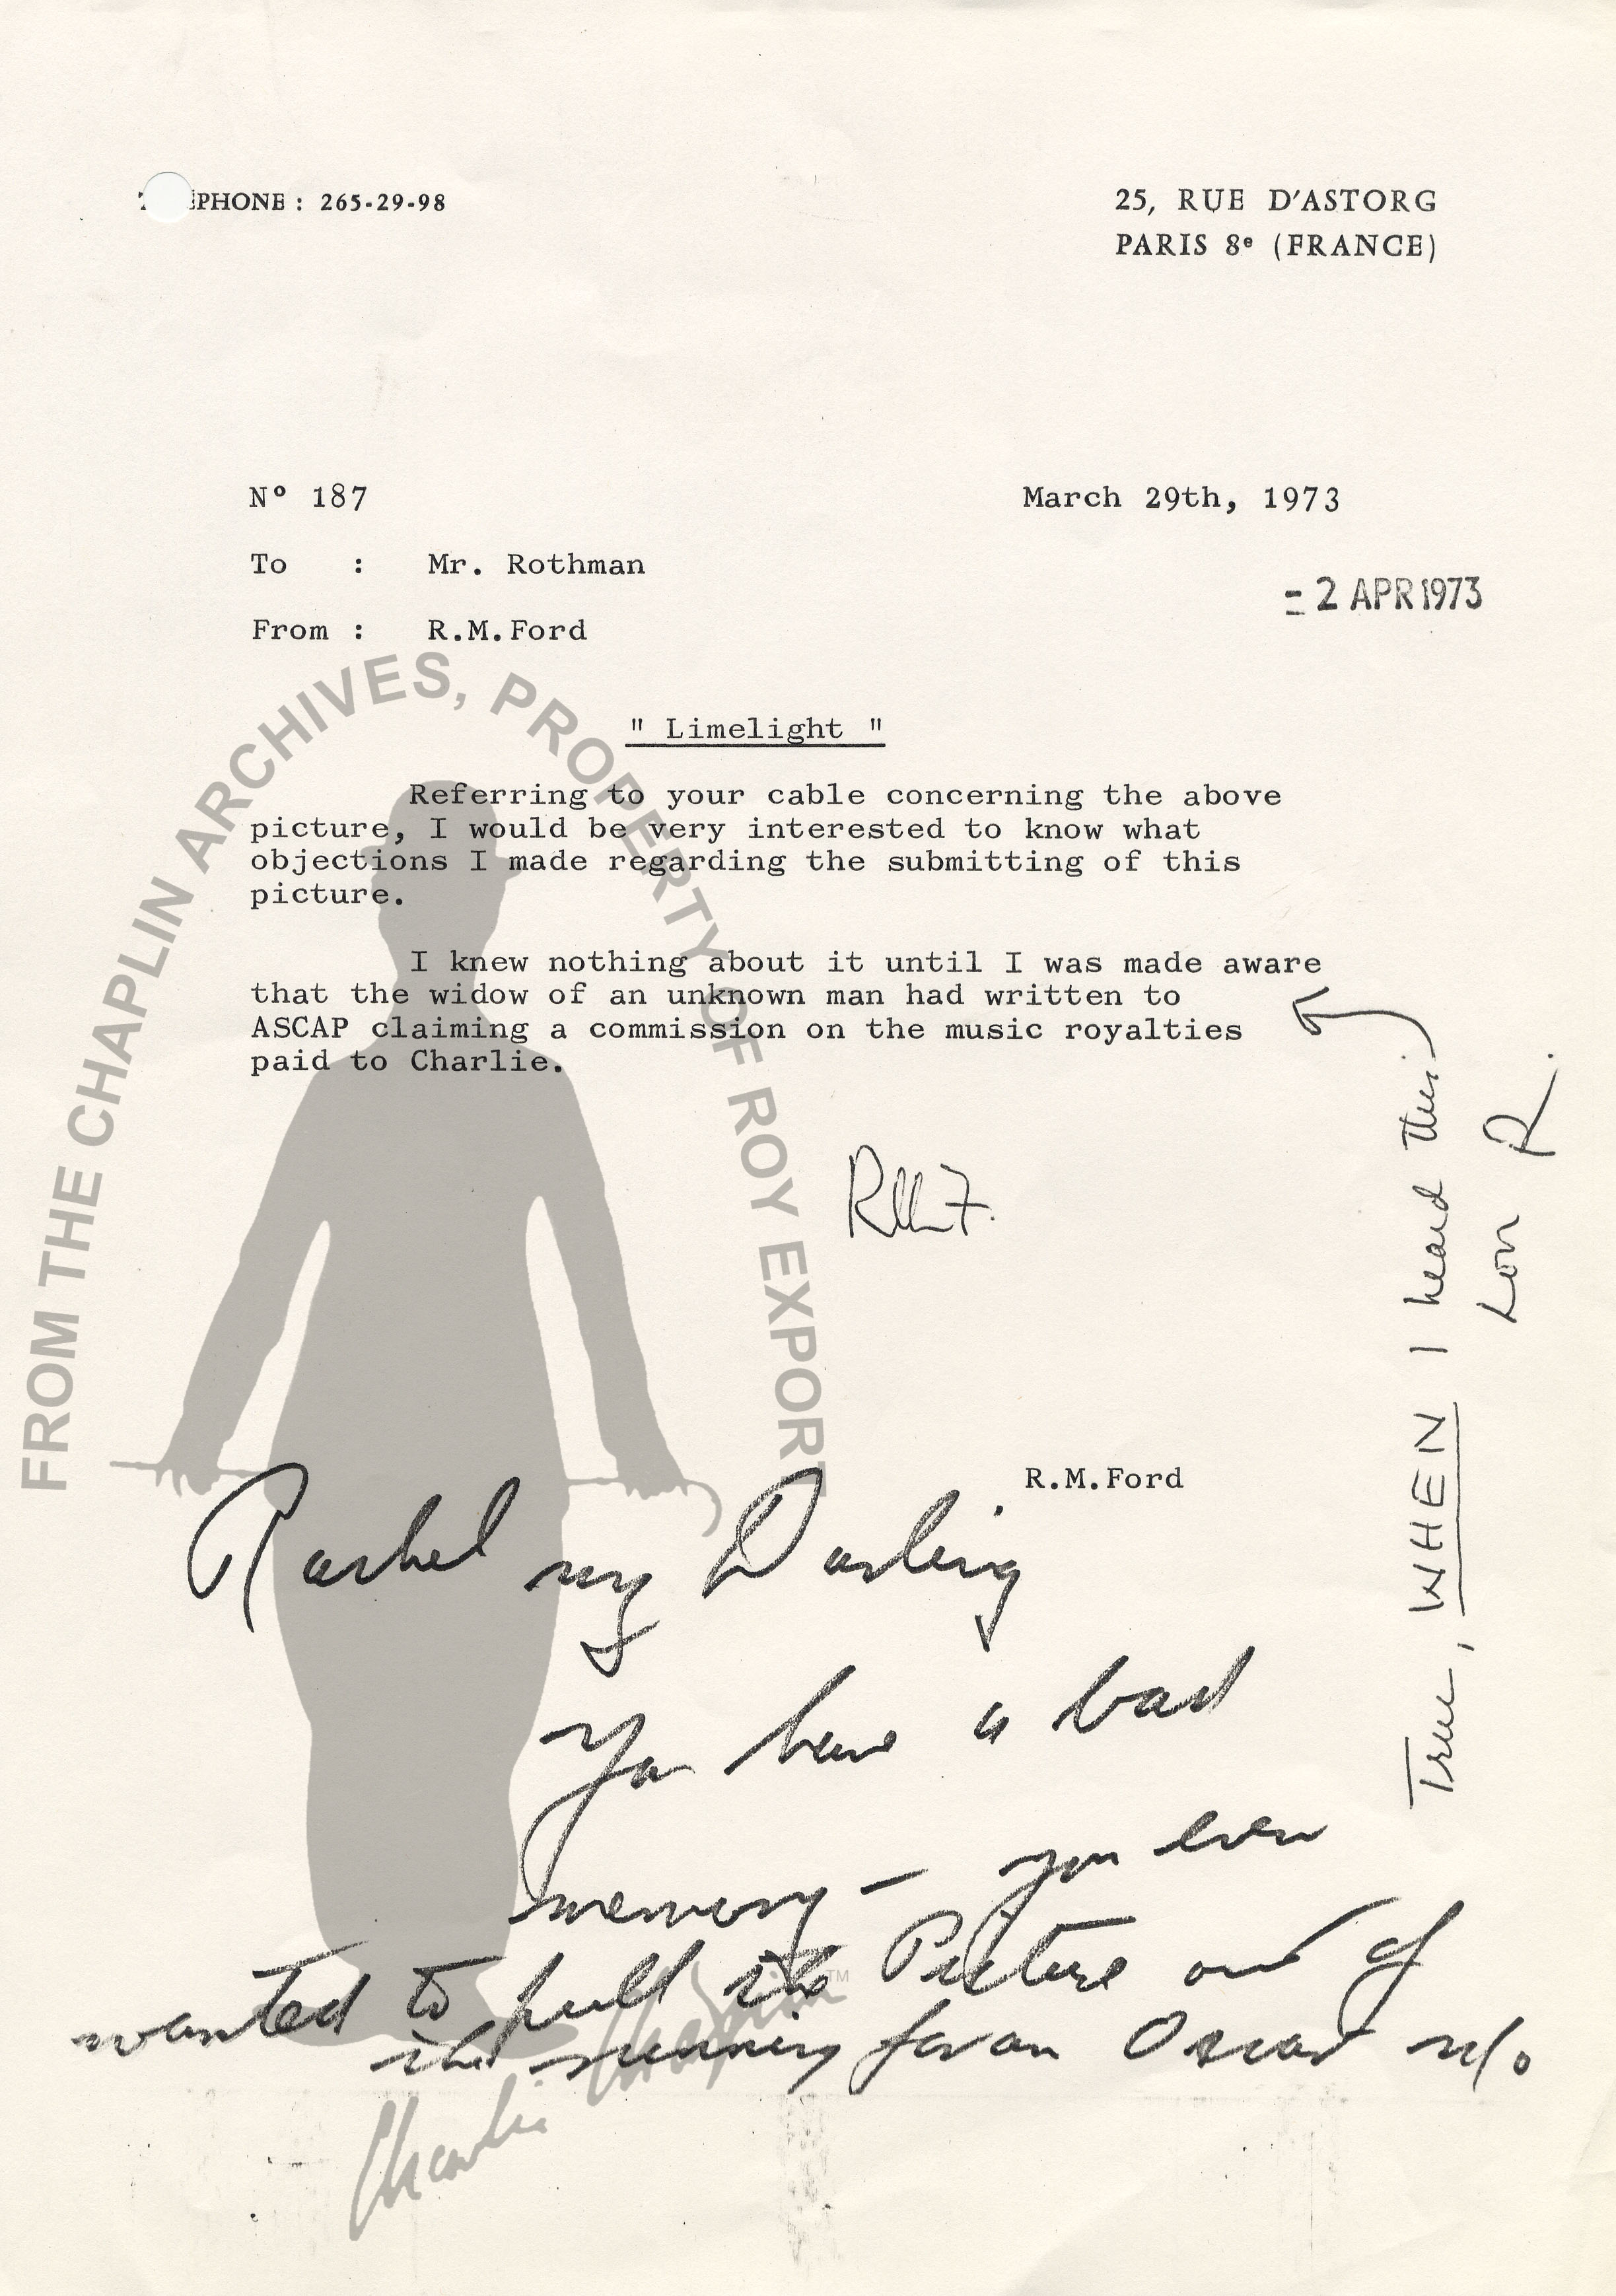 PHONE : 265-29-98
25, RUE D'ASTORG
PARIS 8e (FRANCE)
Nº 187
March 29th, 1973
To : Mr. Rothman
- 2 APR 1973
From : R.M.Ford
" Limelight "
Referring to your cable concerning the above
picture, I would be very interested to know what
objections I made regarding the submitting of this
picture.
I knew nothing about it until I was made aware
that the widow of an unknown man had written to
ASCAP claiming a commission on the music royalties
paid to Charlie.
RMF.
R.M.Ford
True, WHEN I heard this.
R.
Rachel my Darling
You have a bad
memory - you even
wanted to pull the Picture out of
the running for an Oscar
FROM THE CHAPLIN ARCHIVES, PROPERTY OF ROY EXPORT
Charlie Chaplin TM